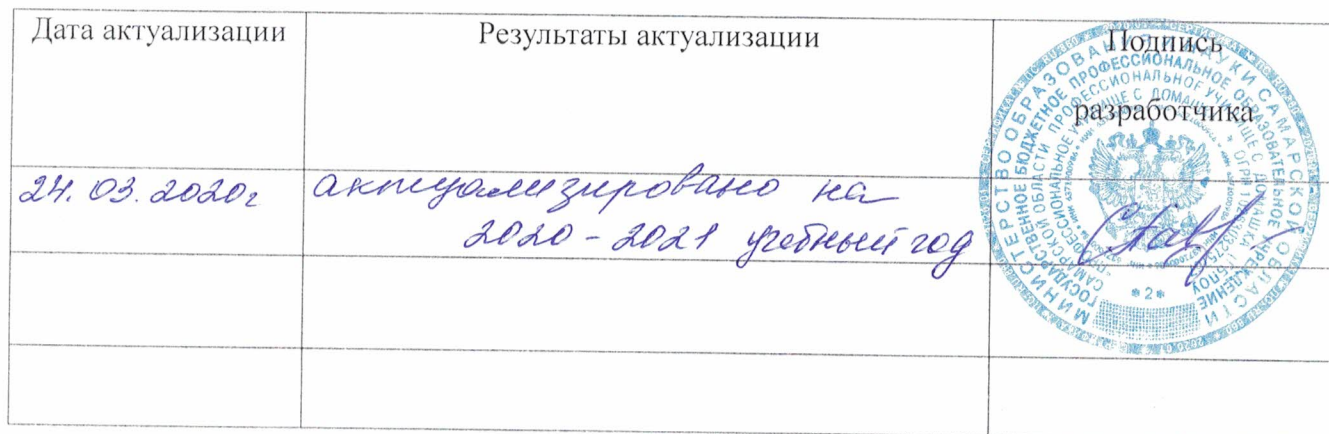 Дата актуализации
Результаты актуализации
Подпись
разработчика
24.03.2020г
актуализировано на
2020-2021 учебный год
МИНИСТЕРСТВО ОБРАЗОВАНИЯ И НАУКИ САМАРСКОЙ ОБЛАСТИ
ГОСУДАРСТВЕННОЕ БЮДЖЕТНОЕ ПРОФЕССИОНАЛЬНОЕ ОБРАЗОВАТЕЛЬНОЕ УЧРЕЖДЕНИЕ
САМАРСКОЙ ОБЛАСТИ
*2*